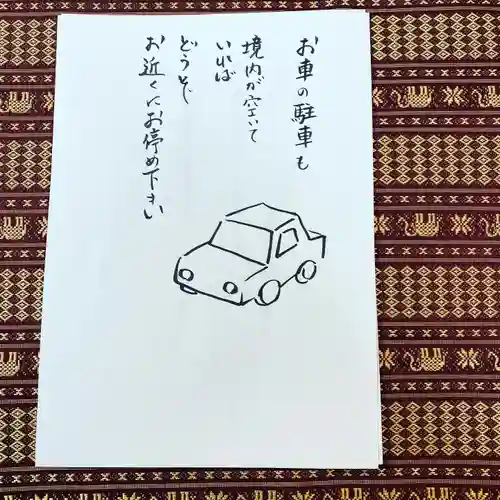 お車の駐車も
境内が空いて
いれば
どうぞ
お近くにお停め下さい